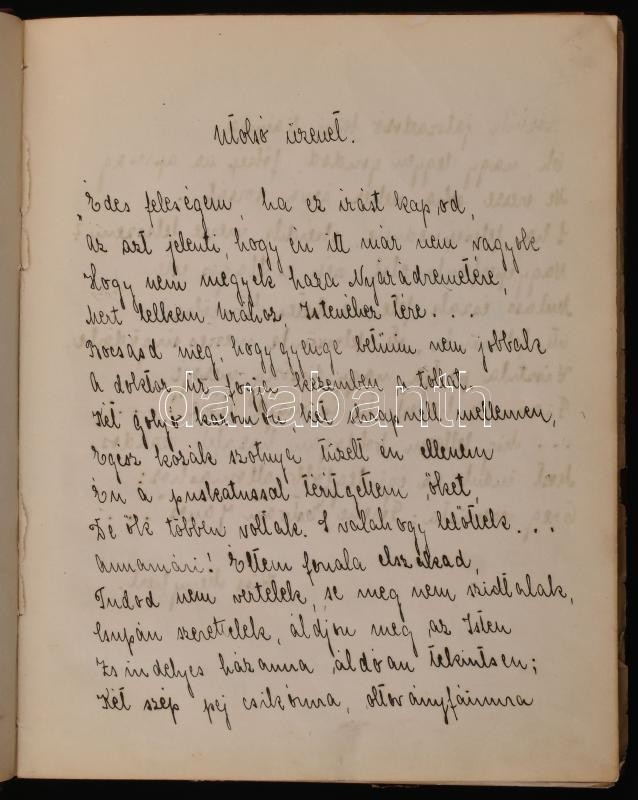 Utolsó üzenet.
„Édes feleségem, ha ez irást kapod,
az azt jelenti, hogy én itt már nem vagyok
Hogy nem megyek haza Nyárádremetére,
Mert lelkem Urához, Istenéhez tére...
Bocsásd meg, hogy gyenge betüim nem jobbak
A doktor úr fogja kezemben a tollat.
Két golyó karomban, két shrapnell mellemen,
Egész kozák szotnya tüzelt én ellenem
Én a puskatussal téritgettem őket,
De ők többen voltak. S valahogy lelőttek...
Annamári! Éltem fonala elszakad,
Tudod nem vertelek, se meg nem szidtalak,
Csupán szerettelek, áldjon meg az Isten
Zsindelyes házamra áldóan tekintsen;
Két szép pej csikómra, oltványfáimra
darabanth